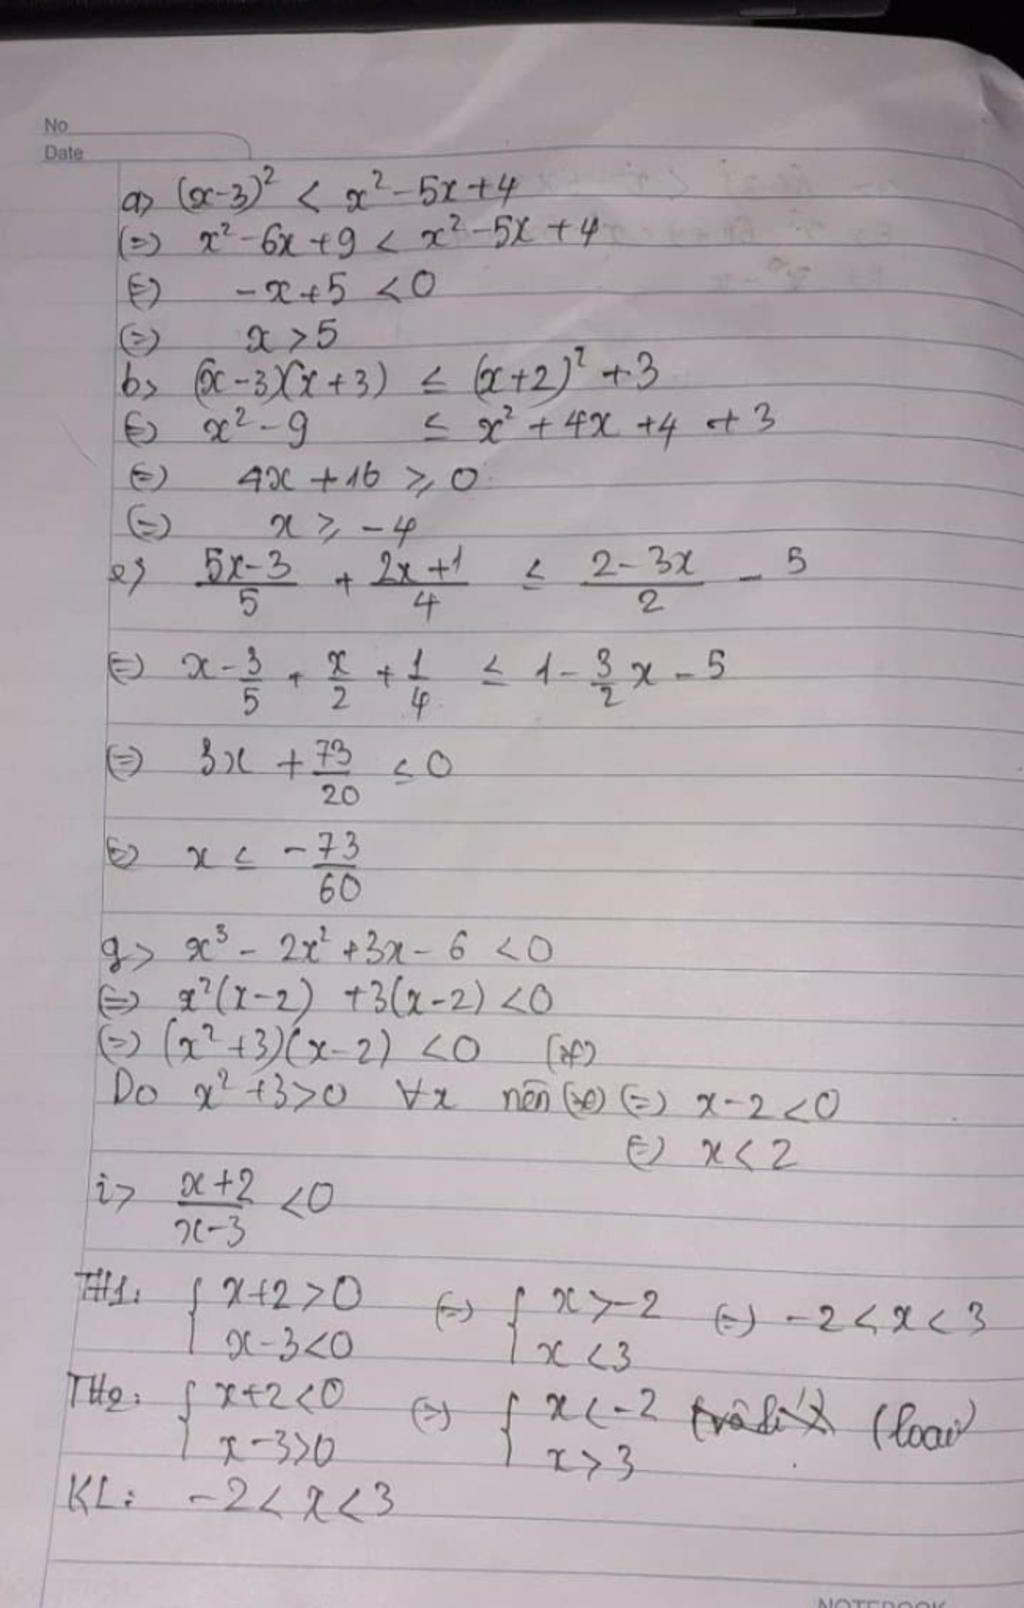 No
Date
a> (x-3)² < x² - 5x + 4
(=) x² - 6x + 9 < x² - 5x + 4
(=) -x + 5 < 0
(=) x > 5
b> (x-3)(x+3) ≤ (x+2)² + 3
(=) x² - 9 ≤ x² + 4x + 4 + 3
(=) 4x + 16 ≥ 0
(=) x ≥ -4
e> (5x-3)/5 + (2x+1)/4 ≤ (2-3x)/2 - 5
(=) x - 3/5 + x/2 + 1/4 ≤ 1 - 3/2 x - 5
(=) 3x + 73/20 ≤ 0
(=) x ≤ -73/60
g> x³ - 2x² + 3x - 6 < 0
(=) x²(x-2) + 3(x-2) < 0
(=) (x²+3)(x-2) < 0 (*)
Do x² + 3 > 0 ∀x nên (*) (=) x-2 < 0
(=) x < 2
i> (x+2)/(x-3) < 0
TH1: { x+2 > 0 ; x-3 < 0 (=) { x > -2 ; x < 3 (=) -2 < x < 3
TH2: { x+2 < 0 ; x-3 > 0 (=) { x < -2 ; x > 3 (loại)
KL: -2 < x < 3
NOTEBOOK